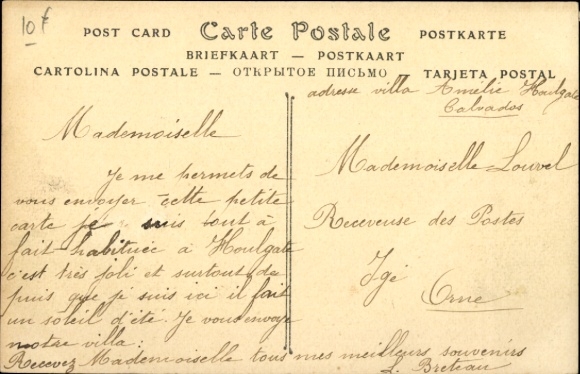 10f
POST CARD Carte Postale POSTKARTE
BRIEFKAART — POSTKAART
CARTOLINA POSTALE — ОТКРЫТОЕ ПИСЬМО — TARJETA POSTAL
adresse villa Amélie Houlgate
Calvados
Mademoiselle
Je me permets de
vous envoyer cette petite
carte je suis tout à
fait habituée à Houlgate
c'est très joli et surtout de
puis que je suis ici il fait
un soleil d'été. Je vous envoye
notre villa:
Recevez Mademoiselle tous mes meilleurs souvenirs
L. Breteau
Mademoiselle Louvel
Receveuse des Postes
Igé
Orne